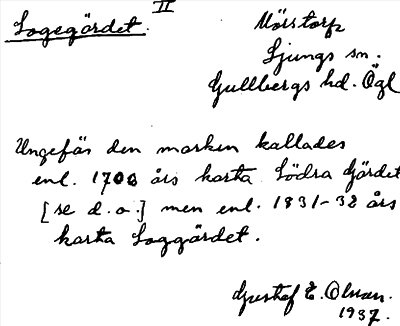 II
Logegärdet.
Mörstorp
Ljungs sn.
Gullbergs hd. Ögl
Ungefär den marken kallades
enl. 1700 års karta Södra Gärdet
[se d.o.] men enl. 1831-32 års
karta Loggärdet.
Gustaf E. Olsson.
1937.